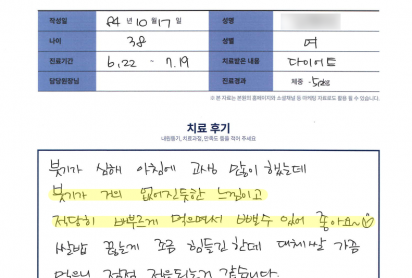 작성일 84 년 10 월 17 일 성명
나이 38 성별 여
진료기간 6.22 - 7.19 치료받은 내용 다이어트
담당원장님 진료경과 체중 -5kg
※ 본 자료는 본원의 홈페이지와 소셜채널 등 마케팅 자료로도 활용 될 수 있습니다.
치료 후기
내원동기, 치료과정, 만족도 등을 적어 주세요
붓기가 심해 아침에 고생 많이 했는데
붓기가 거의 없어진듯한 느낌이고
적당히 배부르게 먹으면서 뺄수 있어 좋아요~
쌀밥 끊는게 조금 힘들긴한데 대체쌀 가끔
먹으니 점점 적응되는거 같습니다.